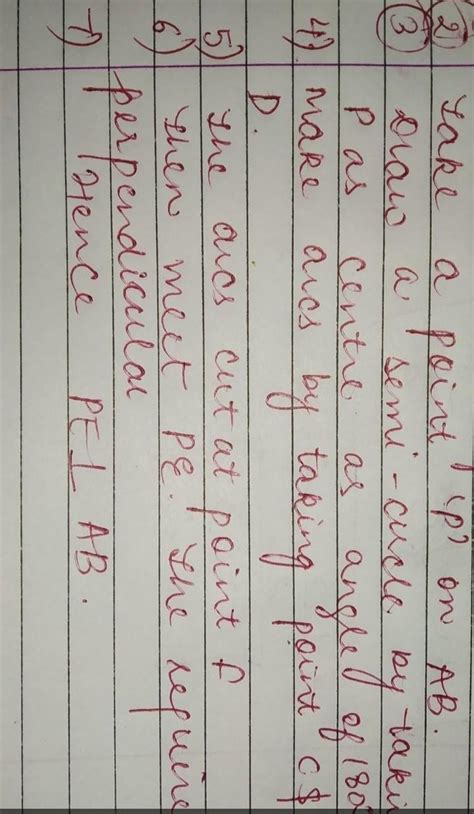 2) Take a point 'P' on AB.
3) Draw a semi-circle by taki
P as centre as angle of 180°
4) Make arcs by taking point C &
D.
5) The arcs cut at point f
6) Then meet PE. The require
perpendicular
7) Hence PE ⊥ AB.